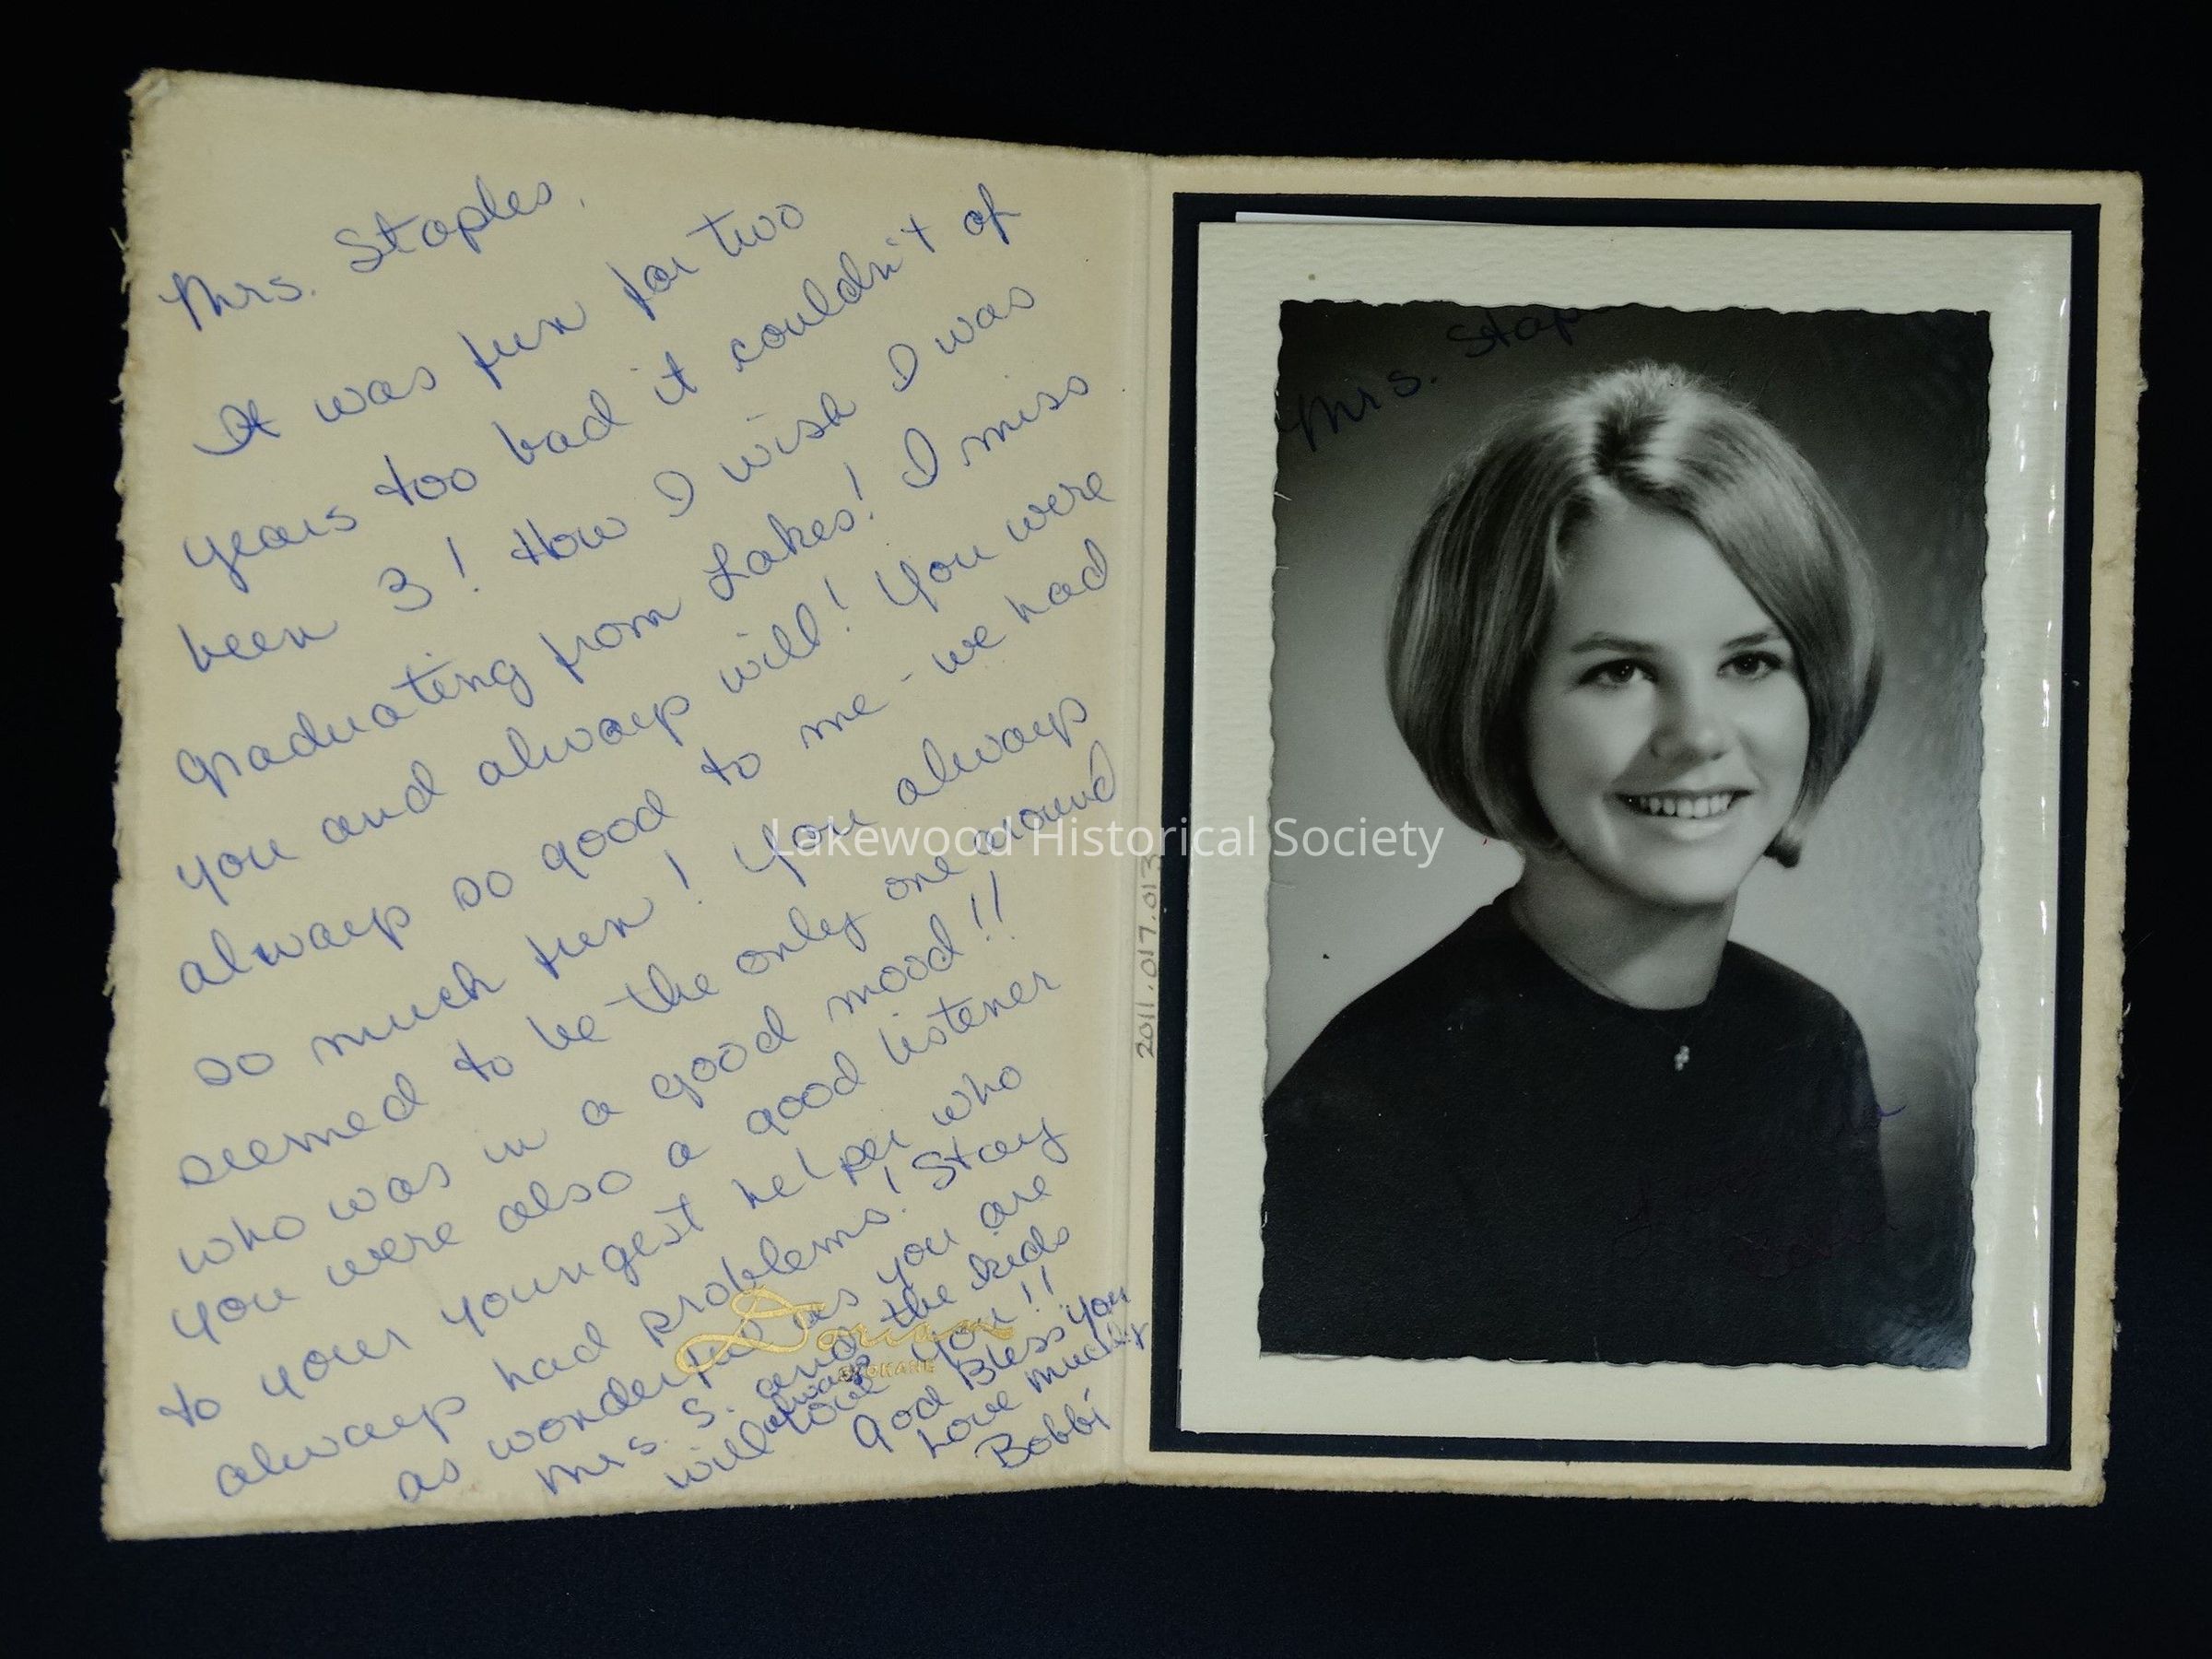 Mrs. Staples,
It was fun for two
years too bad it couldn't of
been 3! How I wish I was
graduating from Lakes! I miss
you and always will! You were
always so good to me - we had
so much fun! You always
seemed to be the only one around
who was in a good mood!!
You were also a good listener
to your youngest helper who
always had problems! Stay
as wonderful as you are
Mrs. S. and the kids
will always love you!!
God Bless you
Love much,
Bobbi
Dorian
SPOKANE
2011.017.013
Mrs. Stap
Lakewood Historical Society